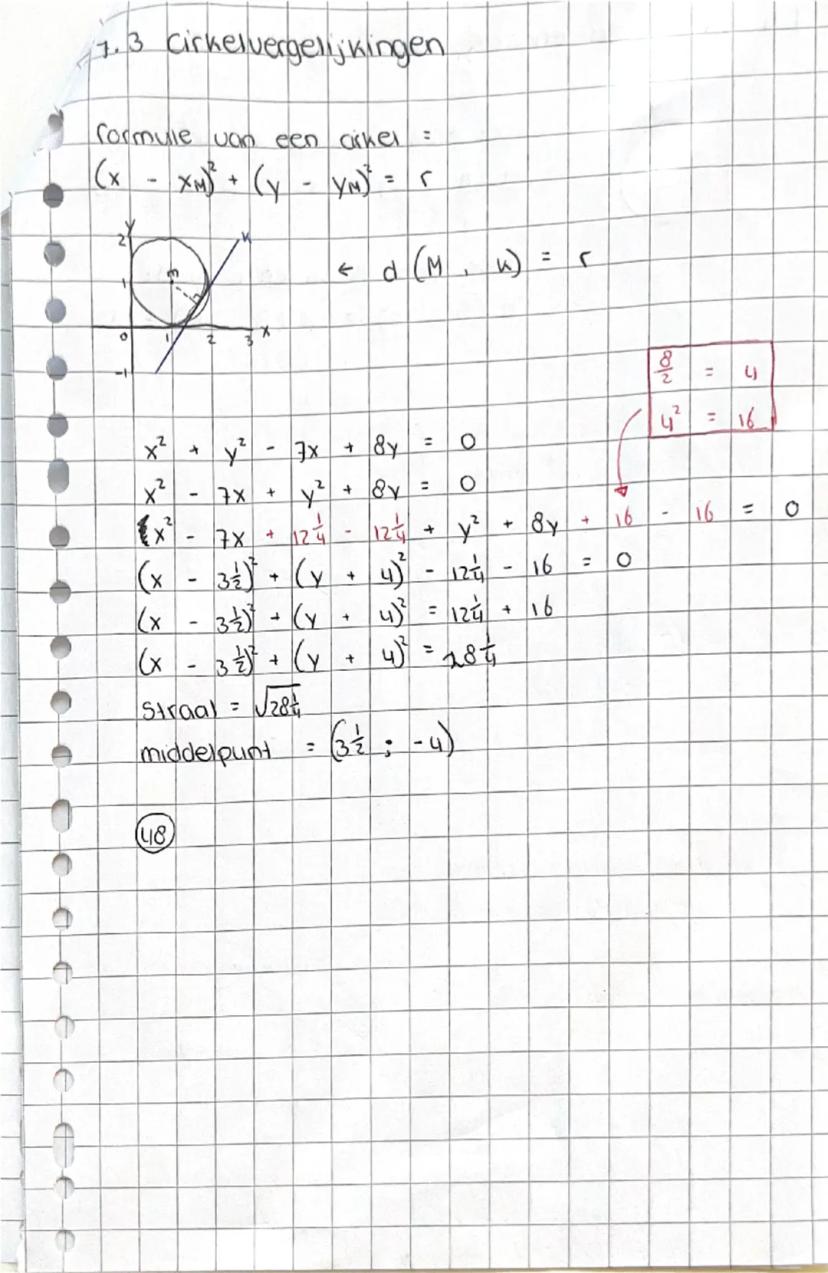 7.3 Cirkelvergelijkingen
formule van een cirkel =
(x - xM)² + (y - yM)² = r
y
2
k
m
1
← d (M, k) = r
0 1 2 3 x
-1
8/2 = 4
4² = 16
x² + y² - 7x + 8y = 0
x² - 7x + y² + 8y = 0
x² - 7x + 12 1/4 - 12 1/4 + y² + 8y + 16 - 16 = 0
(x - 3 1/2)² + (y + 4)² - 12 1/4 - 16 = 0
(x - 3 1/2)² + (y + 4)² = 12 1/4 + 16
(x - 3 1/2)² + (y + 4)² = 28 1/4
straal = √28 1/4
middelpunt = (3 1/2 ; -4)
48